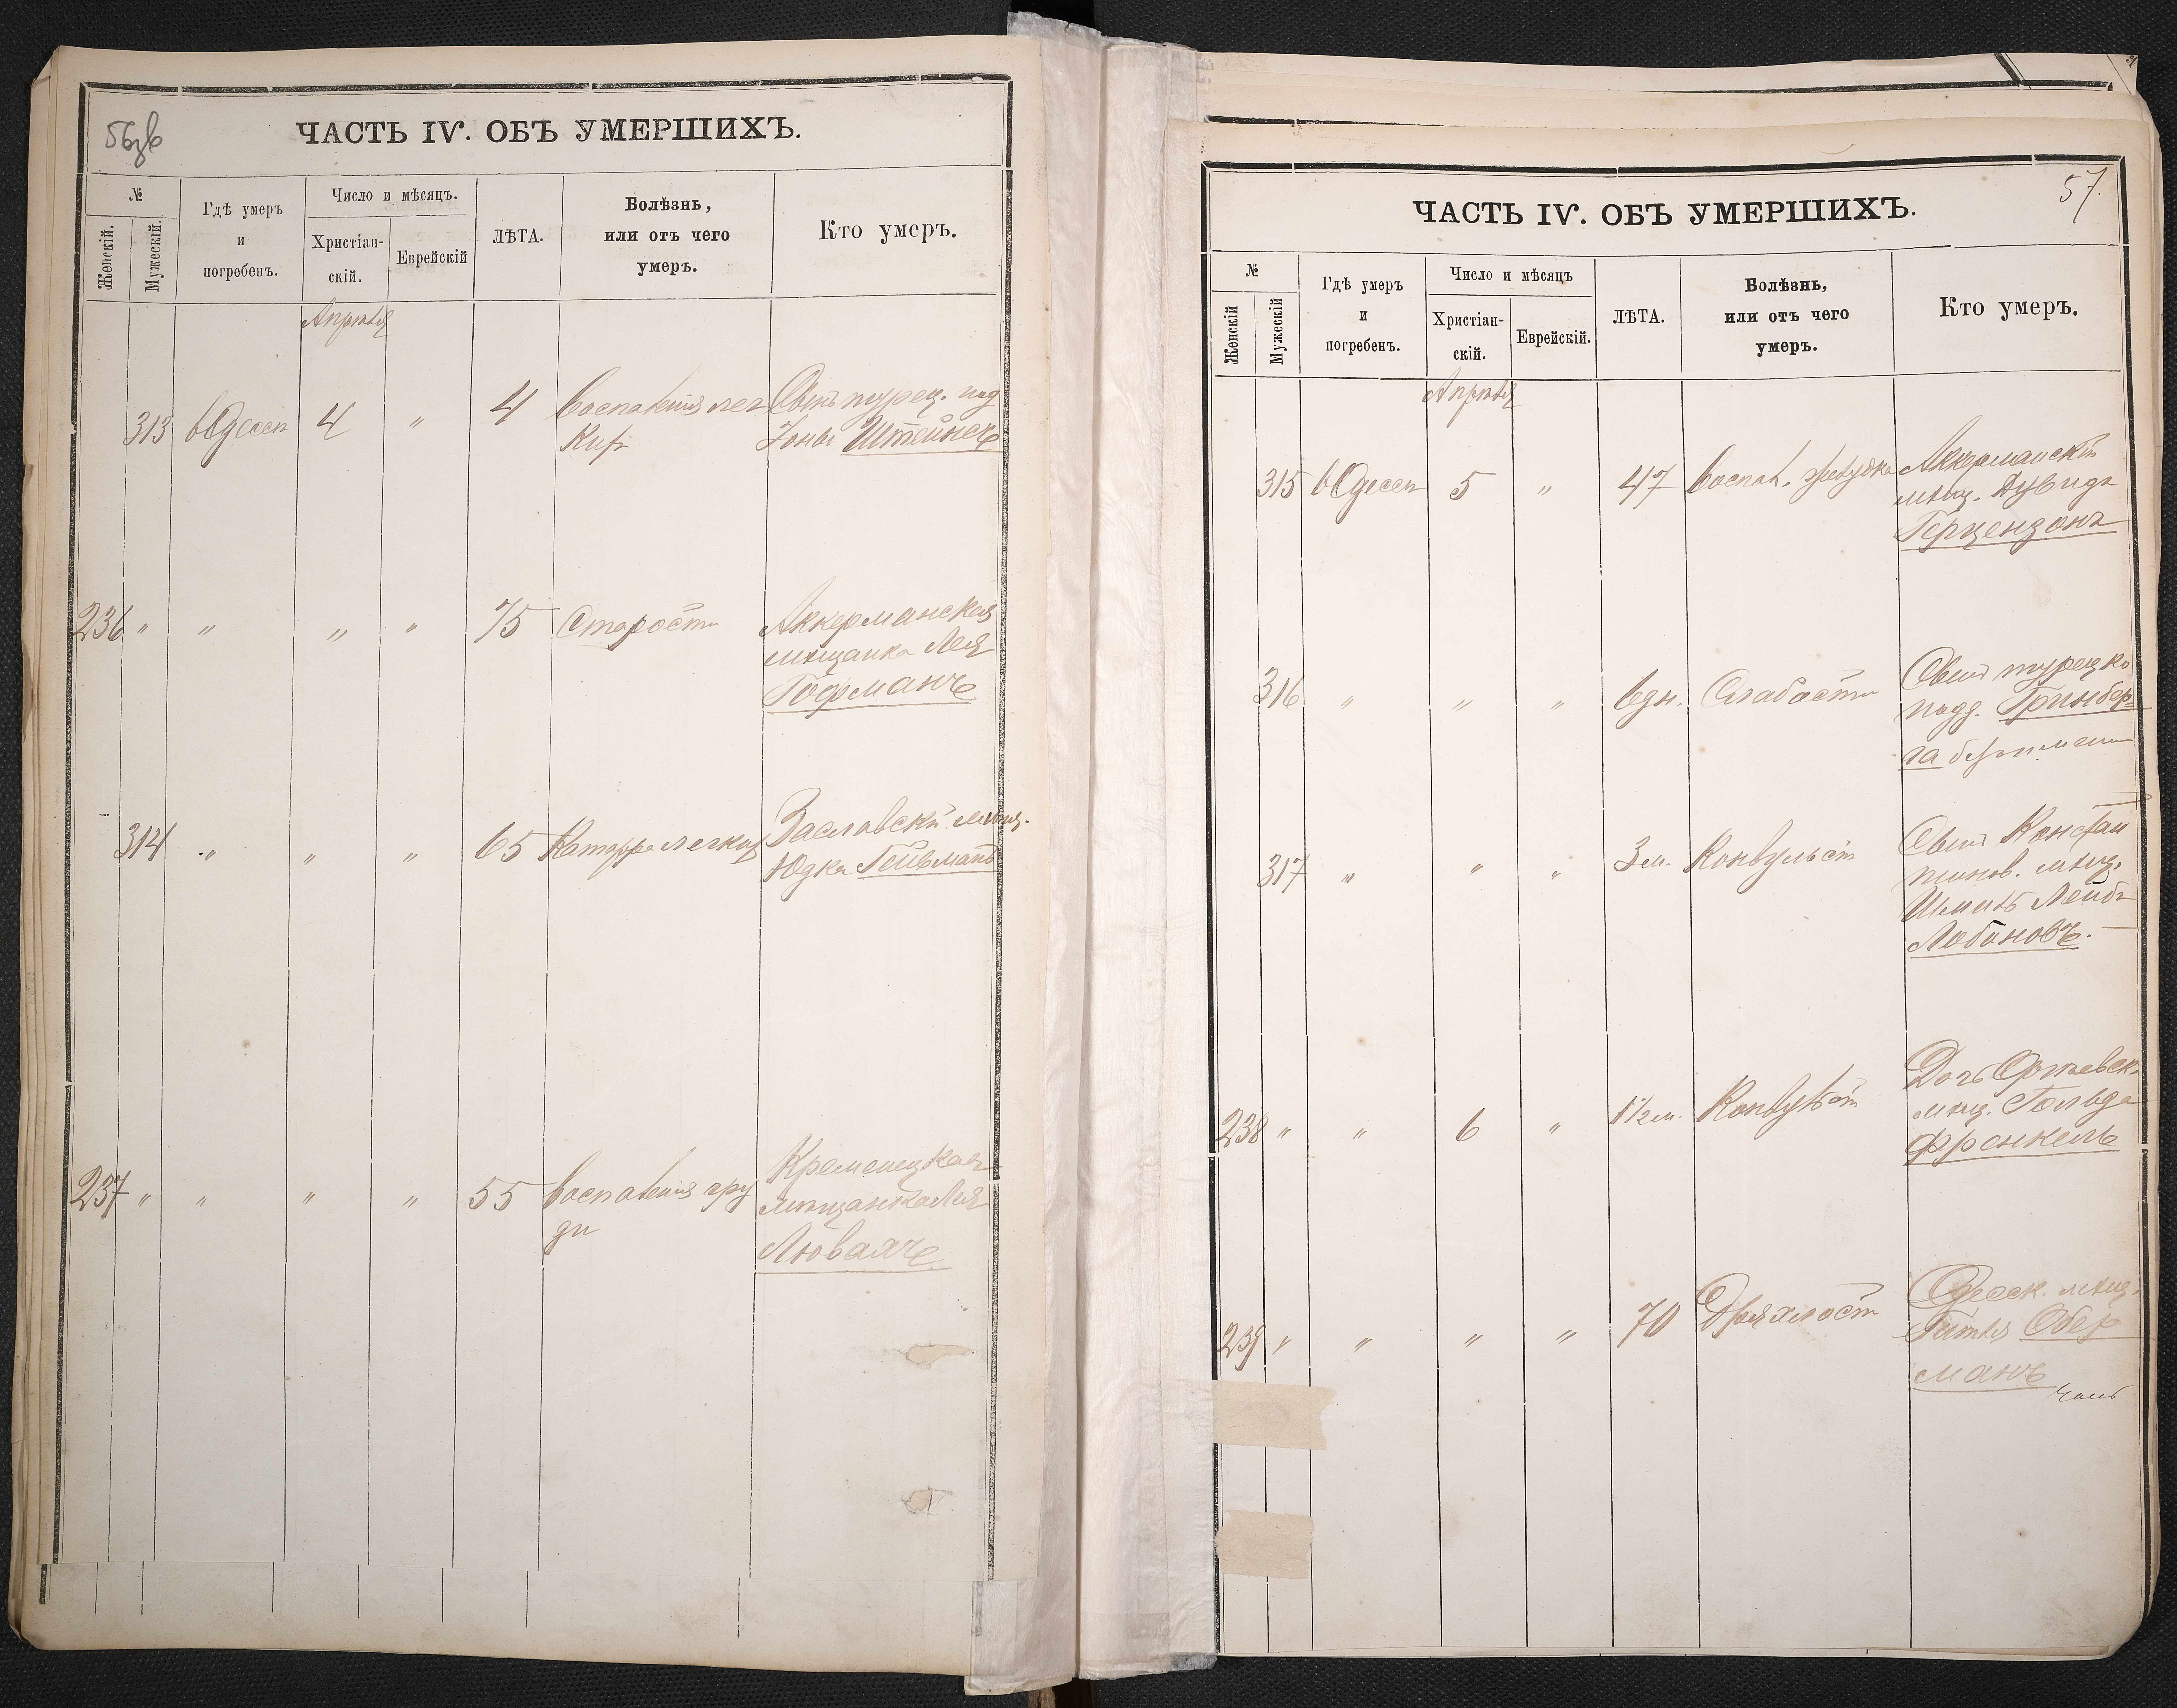 56зв
ЧАСТЬ IV. ОБЪ УМЕРШИХЪ.
№
Женскій.
Мужескій.
Гдѣ умеръ
и
погребенъ.
Число и мѣсяцъ.
Христіан-
скій.
Еврейскій
ЛѢТА.
Болѣзнь,
или отъ чего
умеръ.
Кто умеръ.
Апрѣля
313 вОдессѣ 4 " 4 Воспаленія лег Сынъ турец. под
Іоны Штейнсъ
236 " " " " 75 Старости Аккерманская
мѣщанка Лея
Гофманъ
314 " " " 65 Катарра легких Заславскій мѣщ.
Юдка Гельманъ
237 " " " " 55 Воспаленія гру Кременецкая
ди мѣщанка Лея
57.
ЧАСТЬ IV. ОБЪ УМЕРШИХЪ.
№
Женскій
Мужескій
Гдѣ умеръ
и
погребенъ.
Число и мѣсяцъ
Христіан-
скій.
Еврейскій.
ЛѢТА.
Болѣзнь,
или отъ чего
умеръ.
Кто умеръ.
Апрѣля
315 вОдессѣ 5 " 47 Воспал. желудка Аккерманскій
мѣщ. Дувидъ
Герцензонъ
316 " " " дн. Слабости Сынъ турецко
подд. Гринбер-
га безъ имени
317 " " " 3 м. Конвульсіи Сынъ Констан
тинов. мѣщ.
Лейбъ
Лобоновъ.
238 " " " 6 " 1 1/2 м. Дочь
мѣщ. Гольда
Френкель
239 " " " " 70 Дряхлост Одесск. мѣщ.
Гитля Обер
манъ